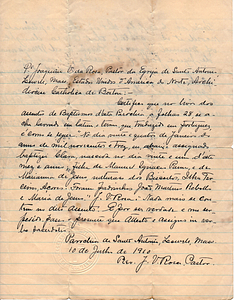 Pe Joaquim V. da Rosa, Pastor da Egreja de Santo Antonio
Lowell, Mass. Estados Unidos d'America do Norte, Archi
diocese Catholica de Boston:-
Certifico que no livro dos
assentos de Baptismos desta Parochia a folhas 28 se a
cha lavrado em latim o termo que traduzido em portuguez
é como se segue: "No dia vinte e quatro de Janeiro d
anno de mil novecentos e tres, eu abaixo assignado
baptizei Clara, nascida no dia vinte e um d'este
mez e anno, filha de Manuel Ignacio
Marianna de Jesus naturaes dos Biscoitos, Ilha Ter
ceira, Açores. Foram padrinhos João Martins Rebello
e Maria de Jesus. J. V. Rosa. Nada mais se con
tem no dito assento. E por ser verdade e me ser
pedido passo a presente que assigno
Parochia de Santo Antonio Lowell, Mass.
10 de Junho de 1910
Rev. J. V. Rosa Pastor.